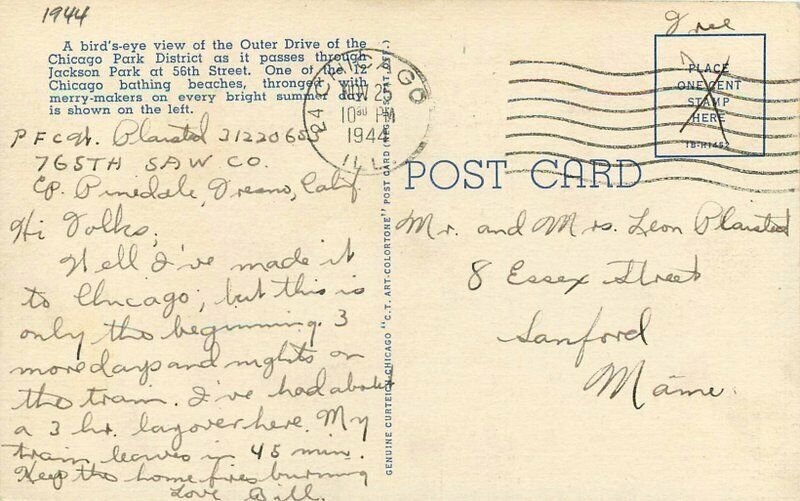 1944
A bird's-eye view of the Outer Drive of the
Chicago Park District as it passes through
Jackson Park at 56th Street. One of the 12
Chicago bathing beaches, thronged with
merry-makers on every bright summer day
is shown on the left.
PFC W. Plaisted 31220655
765TH SAW CO.
CP. Pinedale, Fresno, Calif.
Hi Folks,
Well I've made it
to Chicago; but this is
only the beginning. 3
more days and nights on
the train. I've had about
a 3 hr. layover here. My
train leaves in 45 min.
Keep the home fires burning
Love Bill.
CHICAGO
25
10 30 PM
1944
ILL.
GENUINE CURTEICH-CHICAGO "C.T. ART-COLORTONE" POST CARD (REG. U.S. PAT. OFF.)
Free
PLACE
ONE CENT
STAMP
HERE
1B-H1452
POST CARD
Mr. and Mrs. Leon Plaisted
8 Essex Street
Sanford
Maine.